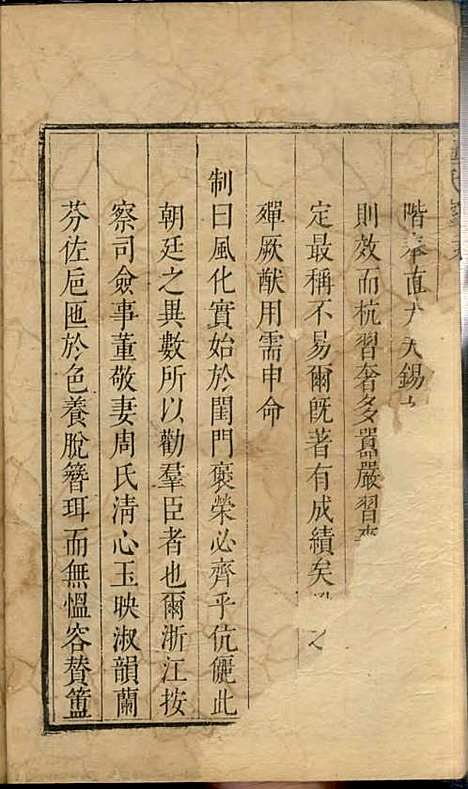 階奉直大夫錫
則效而杭習奢多嚚嚴習
定最稱不易爾旣著有成績矣
殫厥猷用需申命
制曰風化實始於閨門褒榮必齊乎伉儷此
朝廷之異數所以勸羣臣者也爾浙江按
察司僉事董敬妻周氏清心玉映淑韻蘭
芬佐巵匜於色養脫簪珥而無慍容贊簠